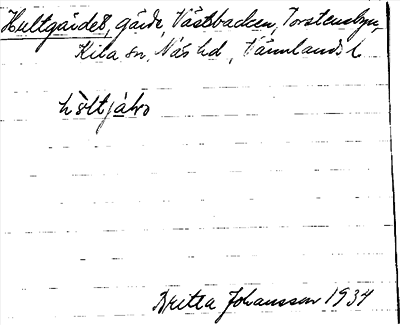 Hultgärdet, gärde, Västbacken, Torstensbyn,
Kila sn, Näs hd, Värmlands l
Britta Johansson 1934